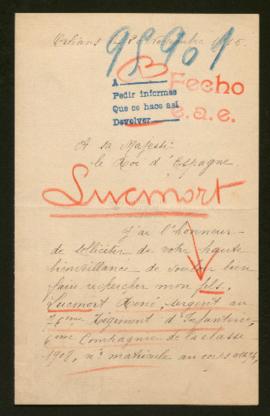 Orléans
95901
A
Pedir informes
Que ce hace así
Devolver
Fecho
e.a.e.
A sa Majesté
le Roi d'Espagne
Lucmort
J'ai l'honneur
de solliciter de votre haute
bienveillance de vouloir bien
faire rechercher mon fils,
Lucmort René, sergent au
76ème Régiment d'Infanterie,
6ème Compagnie de la classe
1907, n° matricule au corps